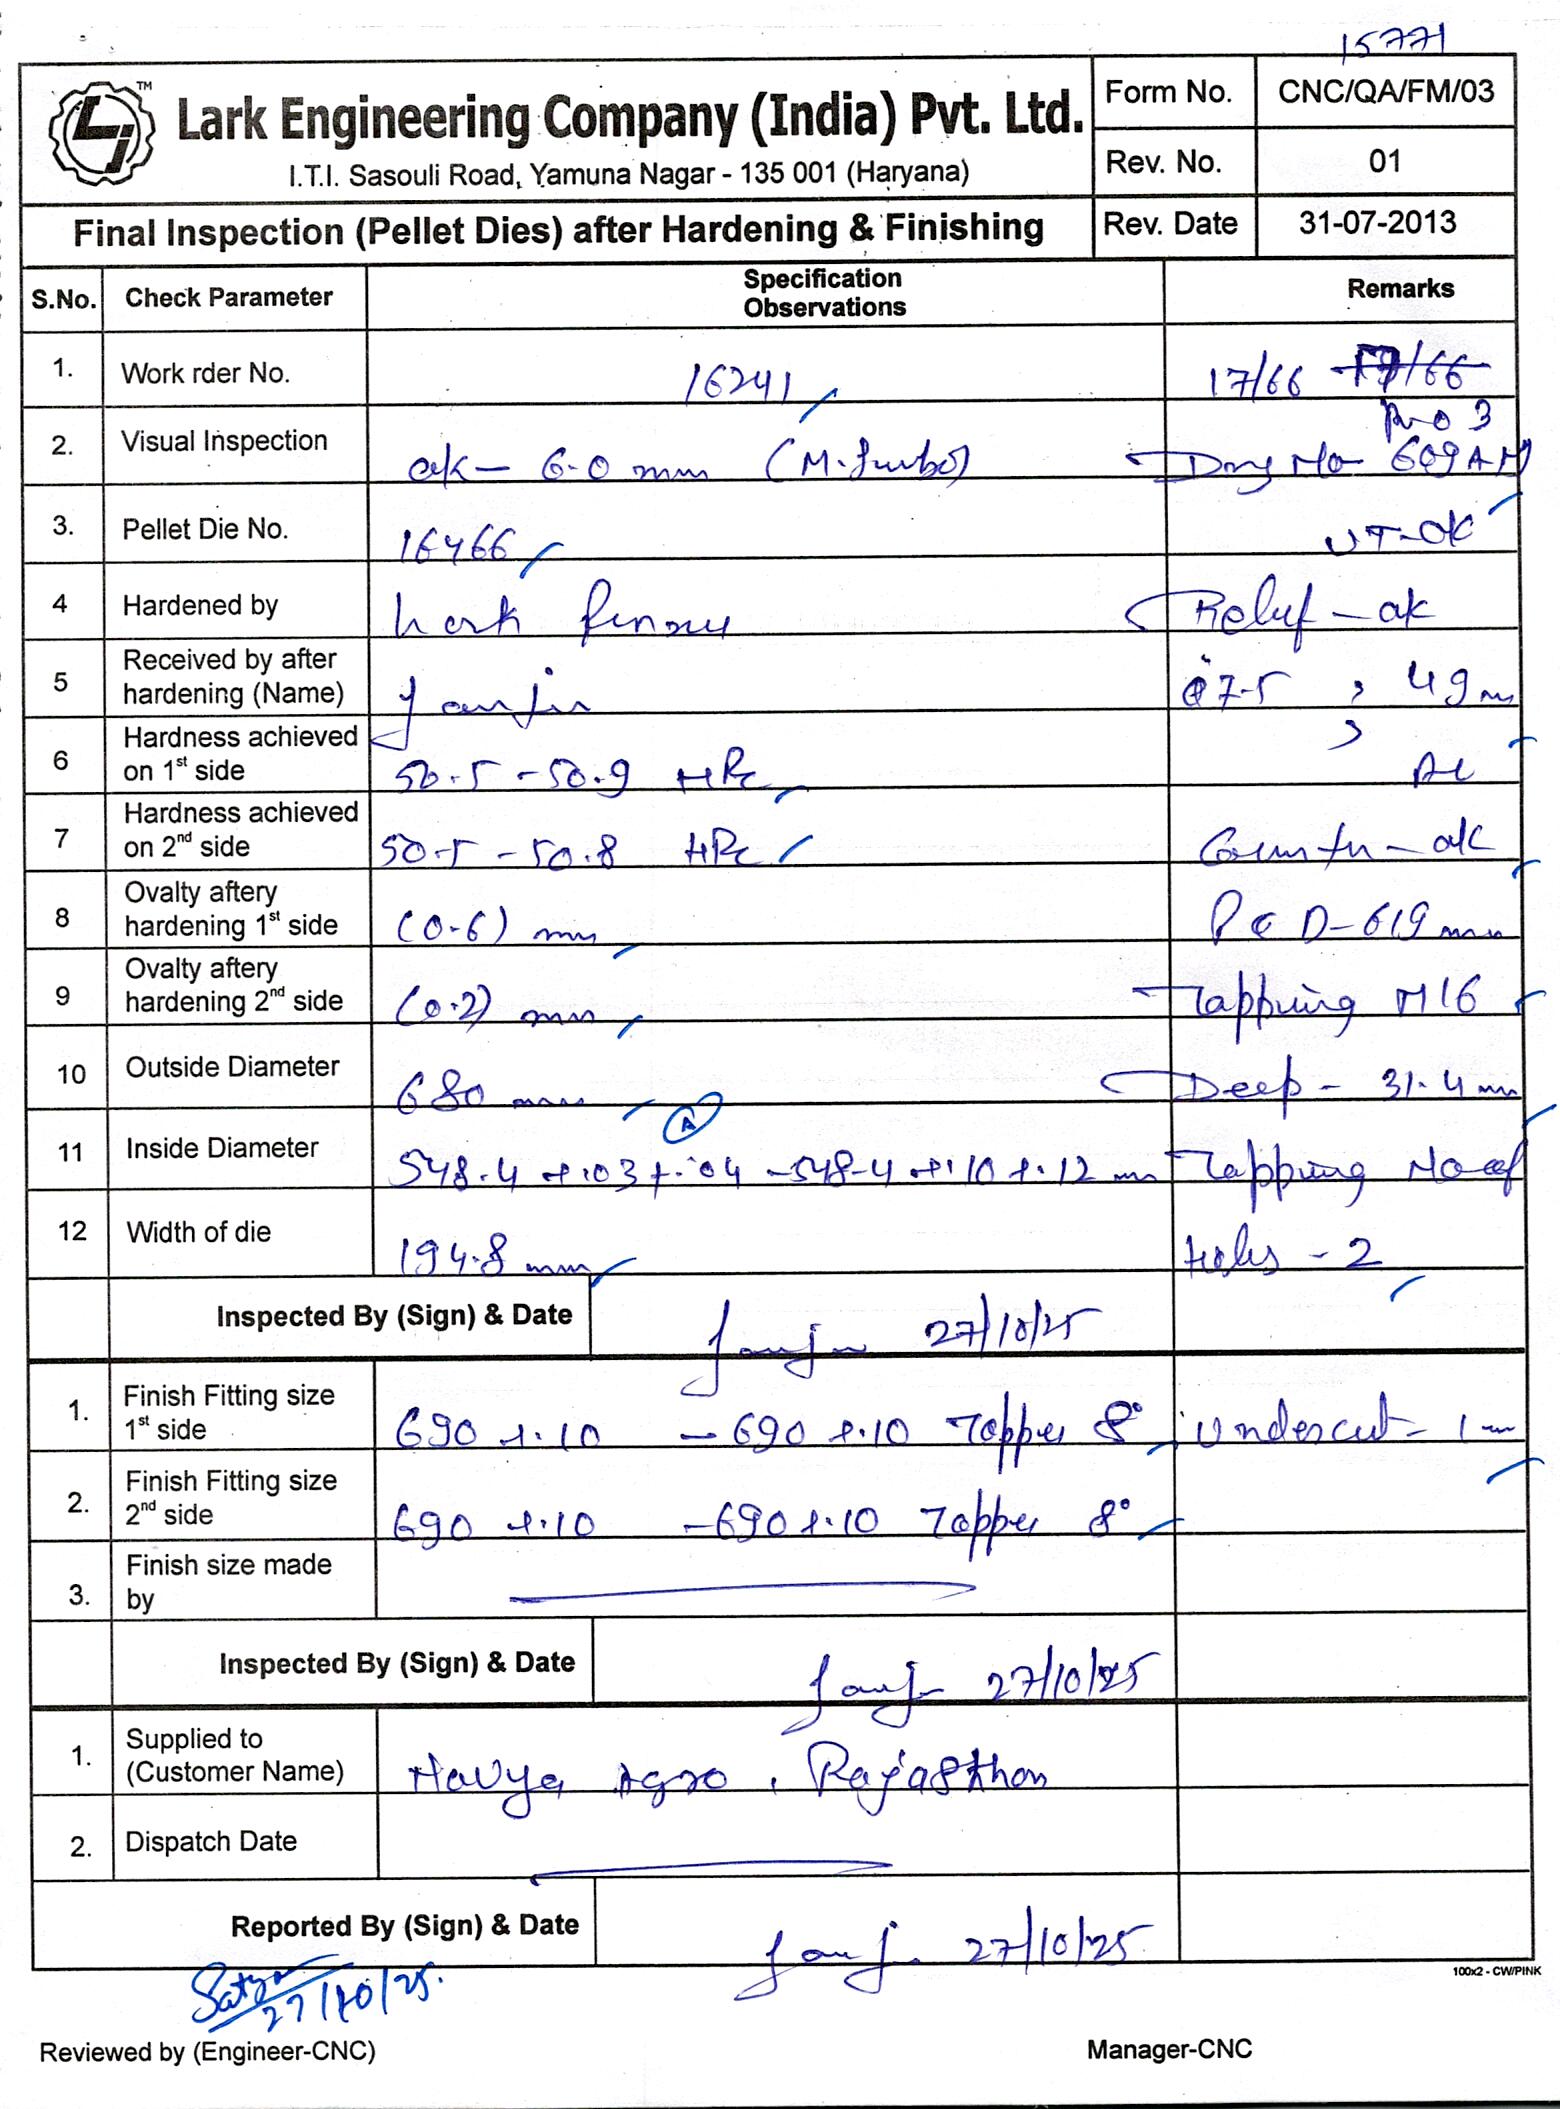 15771
TM
Lark Engineering Company (India) Pvt. Ltd.
I.T.I. Sasouli Road, Yamuna Nagar - 135 001 (Haryana)
Form No. CNC/QA/FM/03
Rev. No. 01
Final Inspection (Pellet Dies) after Hardening & Finishing
Rev. Date 31-07-2013
S.No. Check Parameter Specification Observations Remarks
1. Work rder No. 16241 17/66
2. Visual Inspection ok - 6.0 mm Drg No 609 AM
3. Pellet Die No. 16466 UT-ok
4 Hardened by Lark Relief - ok
5 Received by after hardening (Name) 7.5, 49 m
6 Hardness achieved on 1st side 50.5 - 50.9 HRc
7 Hardness achieved on 2nd side 50.5 - 50.8 HRc Counter - ok
8 Ovalty aftery hardening 1st side (0.6) mm PCD - 619 mm
9 Ovalty aftery hardening 2nd side (0.2) mm Tapping M16
10 Outside Diameter 680 mm Deep - 31.4 mm
A
11 Inside Diameter 548.4 +.03 +.04 - 548.4 +.10 +.12 mm Tapping No of
12 Width of die 194.8 mm Holes - 2
Inspected By (Sign) & Date 27/10/25
1. Finish Fitting size 1st side 690 +.10 - 690 +.10 Tapper 8° Undercut - 1 m
2. Finish Fitting size 2nd side 690 +.10 - 690 +.10 Tapper 8°
3. Finish size made by
Inspected By (Sign) & Date 27/10/25
1. Supplied to (Customer Name) Navya Agro, Rajasthan
2. Dispatch Date
Reported By (Sign) & Date 27/10/25
100x2 - CW/PINK
Satya
27/10/25.
Reviewed by (Engineer-CNC) Manager-CNC